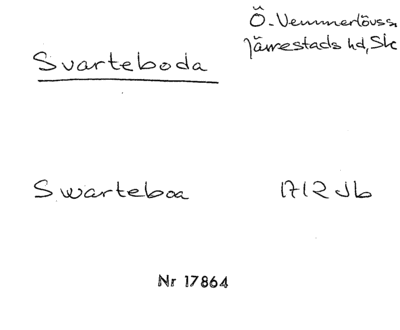 Ö. Vemmerlövs sn
Järrestads hd, Sk
Svarteboda
Swarteboa 1712 Jb
Nr 17864